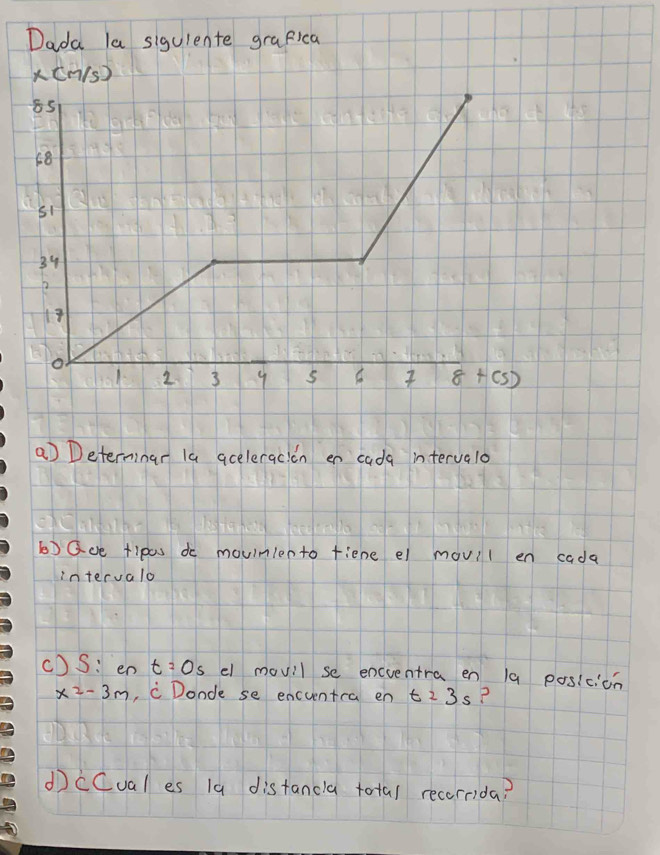 Dada la siguiente grafica
x(m/s)
85
68
51
34
17
0
1 2 3 4 5 6 7 8 t(s)
a) Determinar la aceleración en cada intervalo
b) Que tipos de movimiento tiene el movil en cada
intervalo
c) Si en t=0s el movil se encuentra en la posición
x=-3m, ¿Donde se encuentra en t=3s?
d) ¿Cual es la distancia total recorrida?